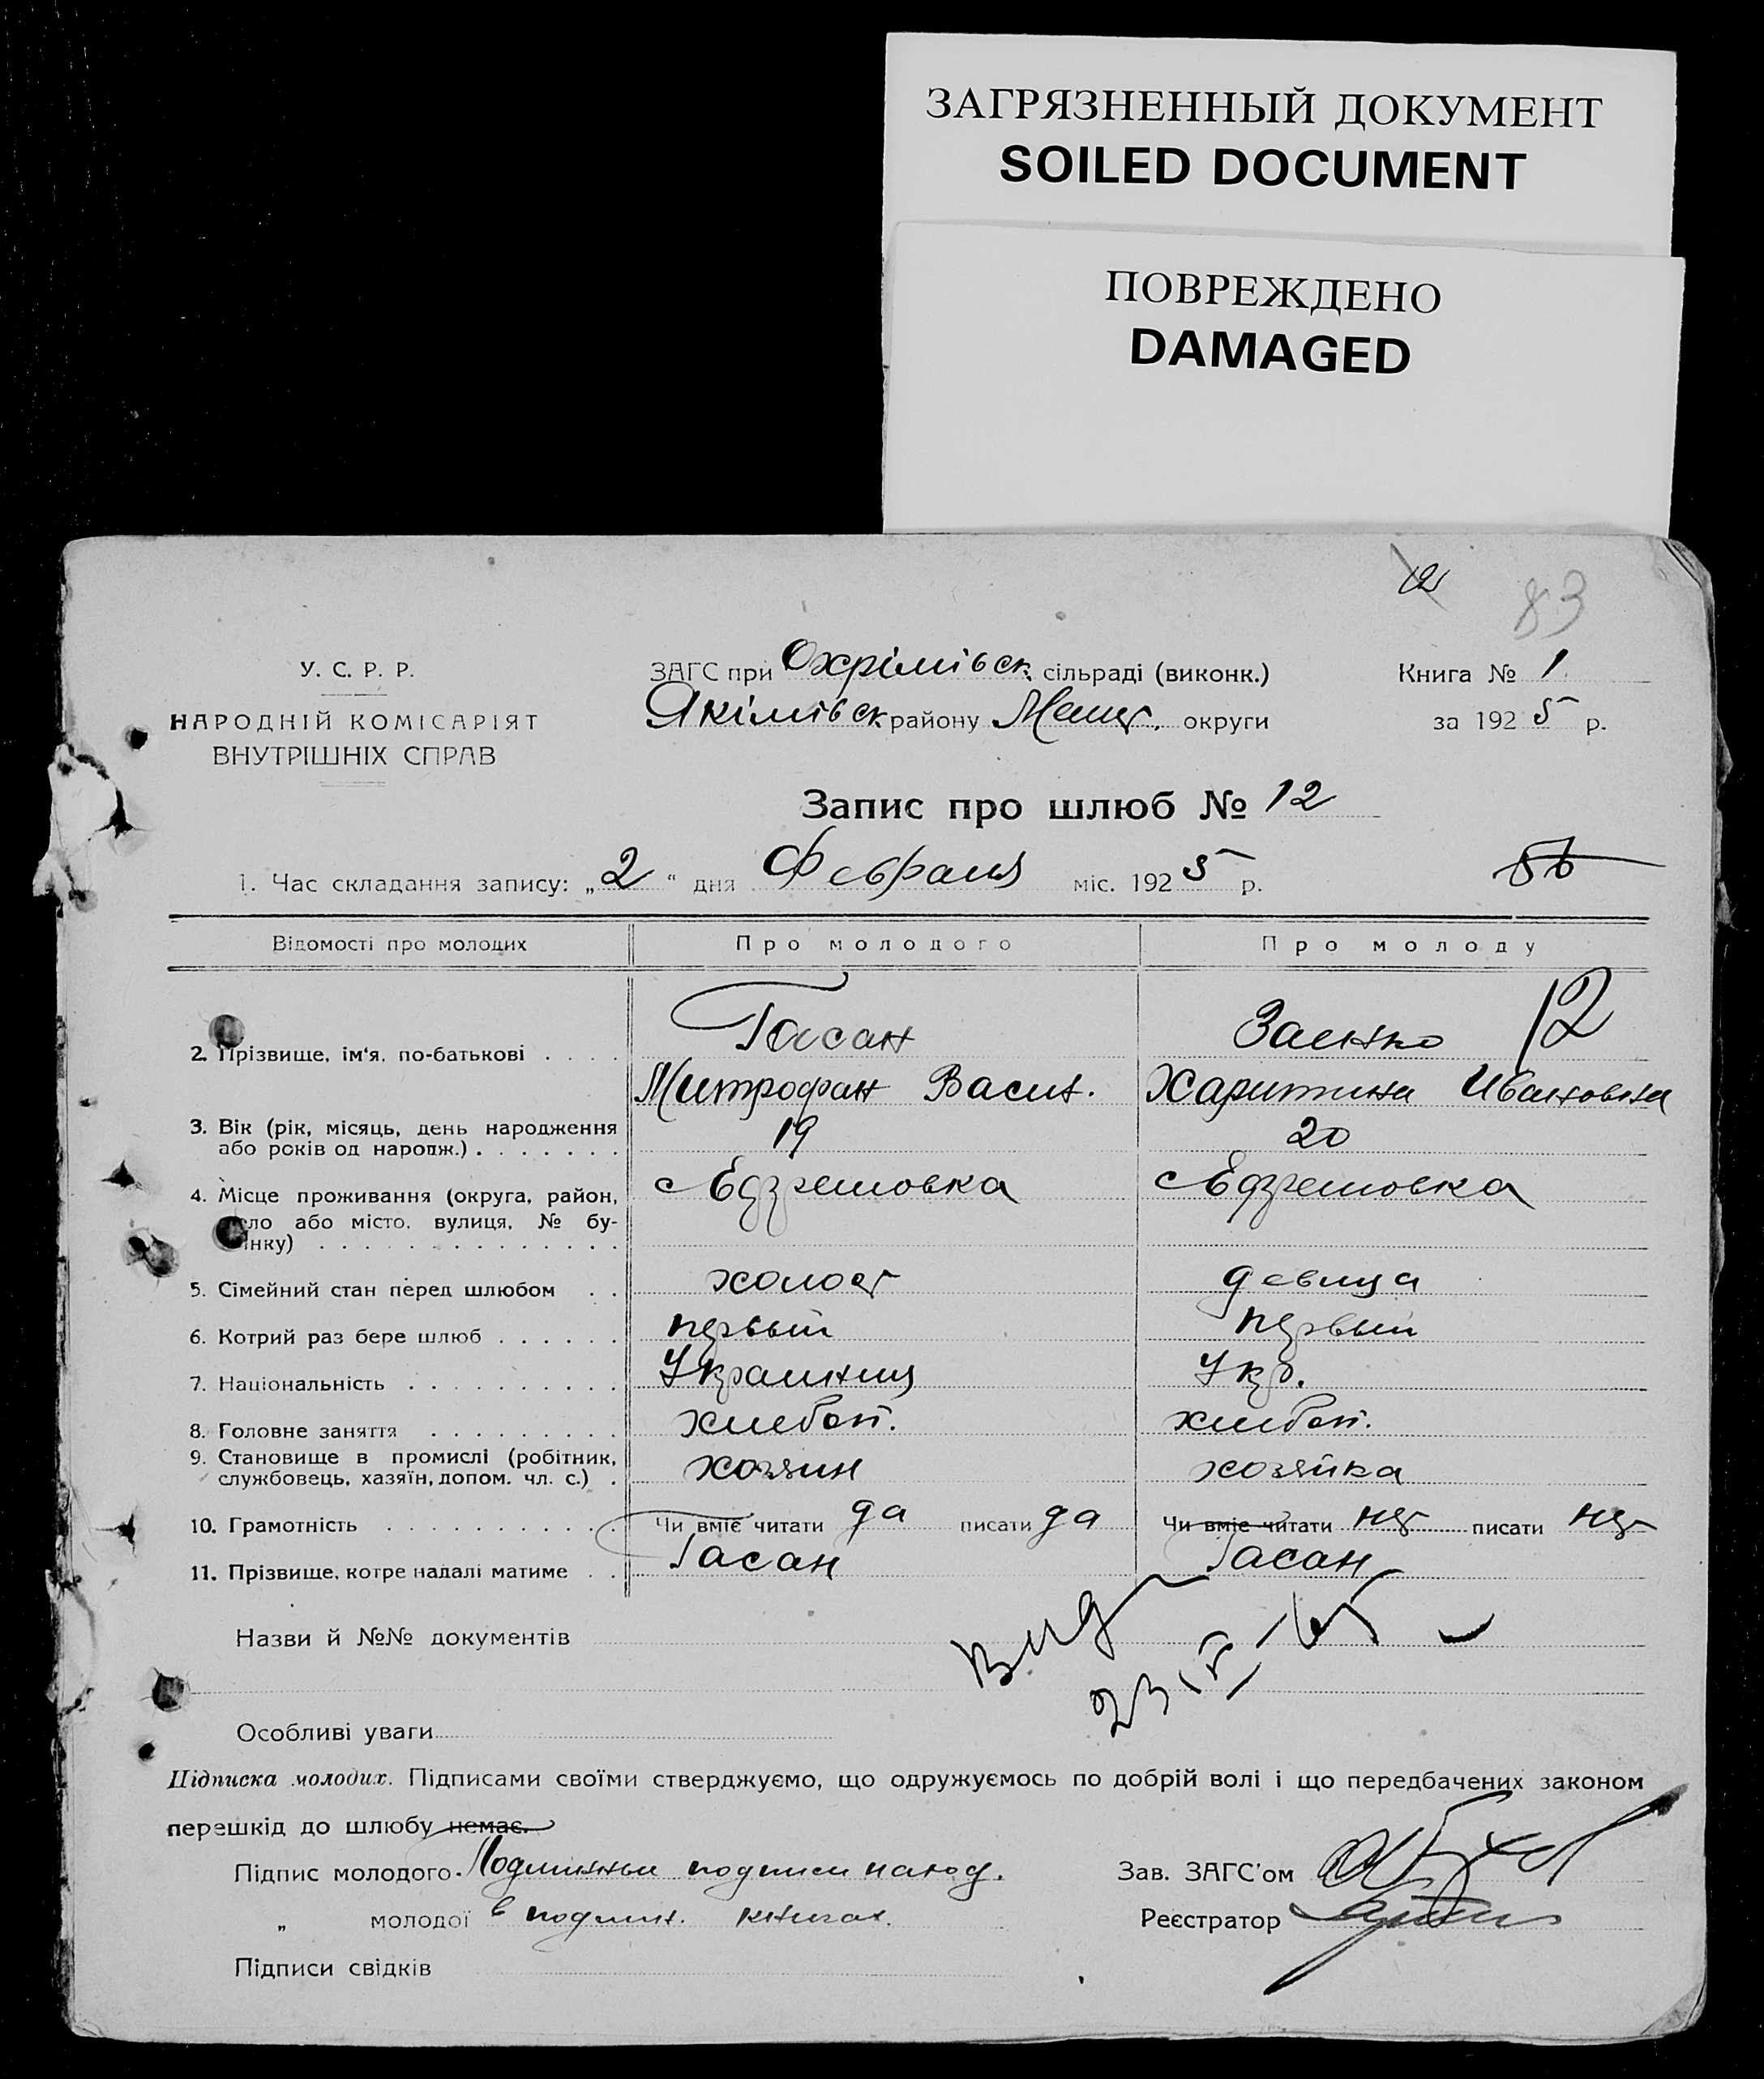 ЗАГРЯЗНЕННЫЙ ДОКУМЕНТ
SOILED DOCUMENT
ПОВРЕЖДЕНО
DAMAGED
12 83
У. С. Р. Р.
НАРОДНІЙ КОМІСАРІЯТ
ВНУТРІШНІХ СПРАВ
ЗАГС при Охрімівск. сільраді (виконк.)
Якімівск району Меліт. округи
Книга № 1
за 1925 р.
Запис про шлюб № 12
1. Час складання запису: „2“ дня Февраля міс. 1925 р.
56
Відомості про молодих Про молодого Про молоду
12
2. Прізвище, ім'я, по-батькові . . . . Гасан Заенко
Митрофан Васил. Харитина Ивановна
3. Вік (рік, місяць, день народження
або років од народж.) . . . . . . . 19 20
4. Місце проживання (округа, район, с
село або місто, вулиця, № бу-
динку) . . . . . . . . . . . . . .
5. Сімейний стан перед шлюбом . . холост девица
6. Котрий раз бере шлюб . . . . . . первый первый
7. Національність . . . . . . . . . . Украинец Укр.
8. Головне заняття . . . . . . . . . хлебоп. хлебоп.
9. Становище в промислі (робітник,
службовець, хазяїн, допом. чл. с.) . хозяин хозяйка
10. Грамотність . . . . . . . . . . . Чи вміє читати да писати да Чи вміє читати нет писати нет
11. Прізвище, котре надалі матиме . . Гасан Гасан
Назви й №№ документів
Особливі уваги
Підписка молодих. Підписами своїми стверджуємо, що одружуємось по добрій волі і що передбачених законом
перешкід до шлюбу немає.
Підпис молодого Подлинные подписи наход.
„ молодої в подлин. книгах.
Зав. ЗАГС'ом
Реєстратор
Підписи свідків